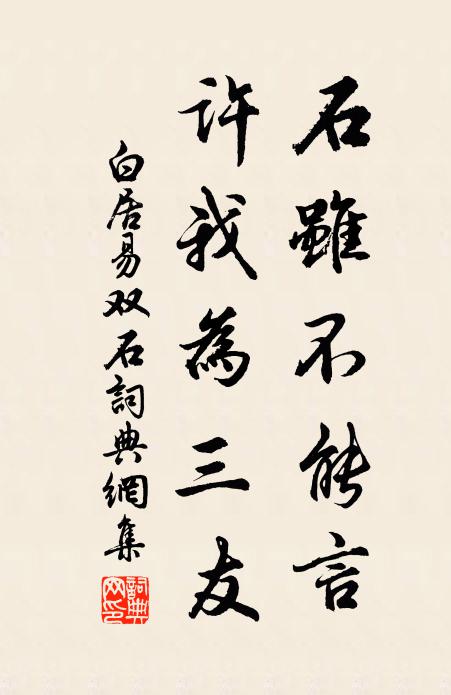 石雖不能言
許我為三友
白居易双石詞典網集
詞典網印